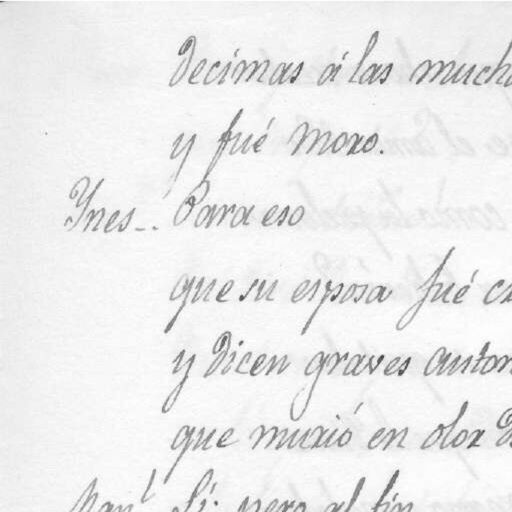 decimas á las mucha
y fué moro.
Ynes-. Para eso
que su esposa fué cr
y dicen graves autor
que murió en olor d
Man.l Si; pero al fin